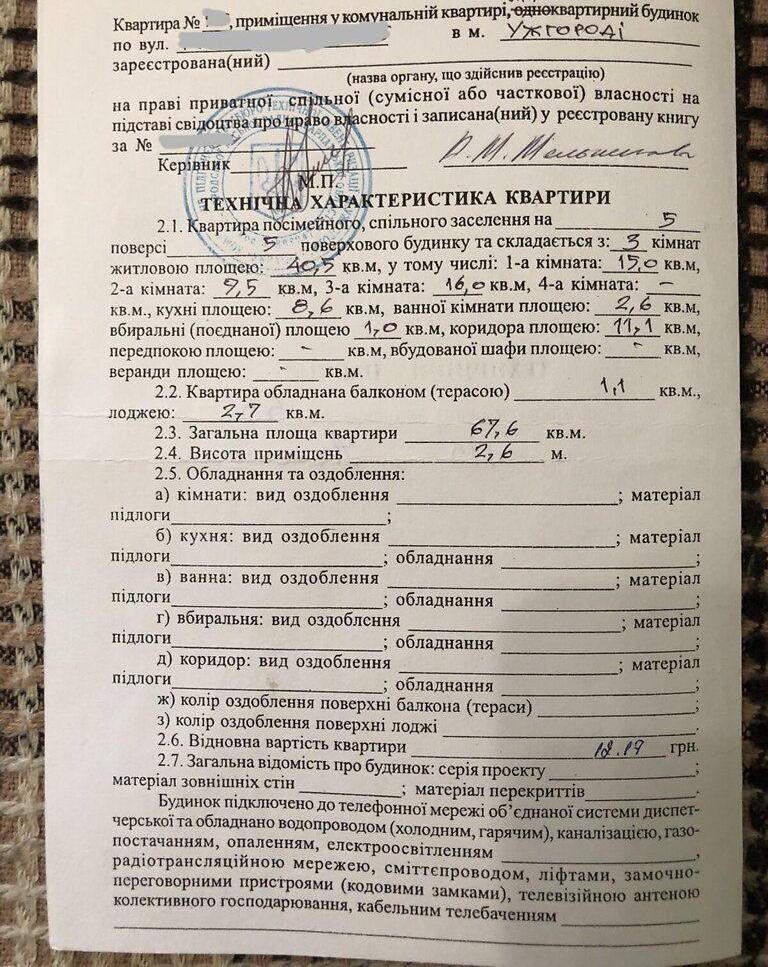 Квартира №, приміщення у комунальній квартирі, одноквартирний будинок
по вул. в м. УЖГОРОДІ
зареєстрована(ний)
(назва органу, що здійснив реєстрацію)
на праві приватної спільної (сумісної або часткової) власності на
підставі свідоцтва про право власності і записана(ний) у реєстровану книгу
за №
Керівник
М.П.
ТЕХНІЧНА ХАРАКТЕРИСТИКА КВАРТИРИ
2.1. Квартира посімейного, спільного заселення на 5
поверсі 5 поверхового будинку та складається з: 3 кімнат
житловою площею: 40,5 кв.м, у тому числі: 1-а кімната: 15,0 кв.м,
2-а кімната: 9,5 кв.м, 3-а кімната: 16,0 кв.м, 4-а кімната: –
кв.м., кухні площею: 8,6 кв.м, ванної кімнати площею: 2,6 кв.м,
вбиральні (поєднаної) площею 1,0 кв.м, коридора площею: 11,1 кв.м,
передпокою площею: - кв.м, вбудованої шафи площею: - кв.м,
веранди площею: - кв.м.
2.2. Квартира обладнана балконом (терасою) 1,1 кв.м.,
лоджею: 2,7 кв.м.
2.3. Загальна площа квартири 67,6 кв.м.
2.4. Висота приміщень 2,6 м.
2.5. Обладнання та оздоблення:
а) кімнати: вид оздоблення ; матеріал
підлоги ;
б) кухня: вид оздоблення ; матеріал
підлоги ; обладнання ;
в) ванна: вид оздоблення ; матеріал
підлоги ; обладнання ;
г) вбиральня: вид оздоблення ; матеріал
підлоги ; обладнання ;
д) коридор: вид оздоблення ; матеріал
підлоги ; обладнання ;
ж) колір оздоблення поверхні балкона (тераси) ;
з) колір оздоблення поверхні лоджі
2.6. Відновна вартість квартири 12.19 грн.
2.7. Загальна відомість про будинок: серія проекту ;
матеріал зовнішніх стін ; матеріал перекриттів .
Будинок підключено до телефонної мережі об’єднаної системи диспет-
черської та обладнано водопроводом (холодним, гарячим), каналізацією, газо-
постачанням, опаленням, електроосвітленням ,
радіотрансляційною мережею, сміттєпроводом, ліфтами, замочно-
переговорними пристроями (кодовими замками), телевізійною антеною
колективного господарювання, кабельним телебаченням